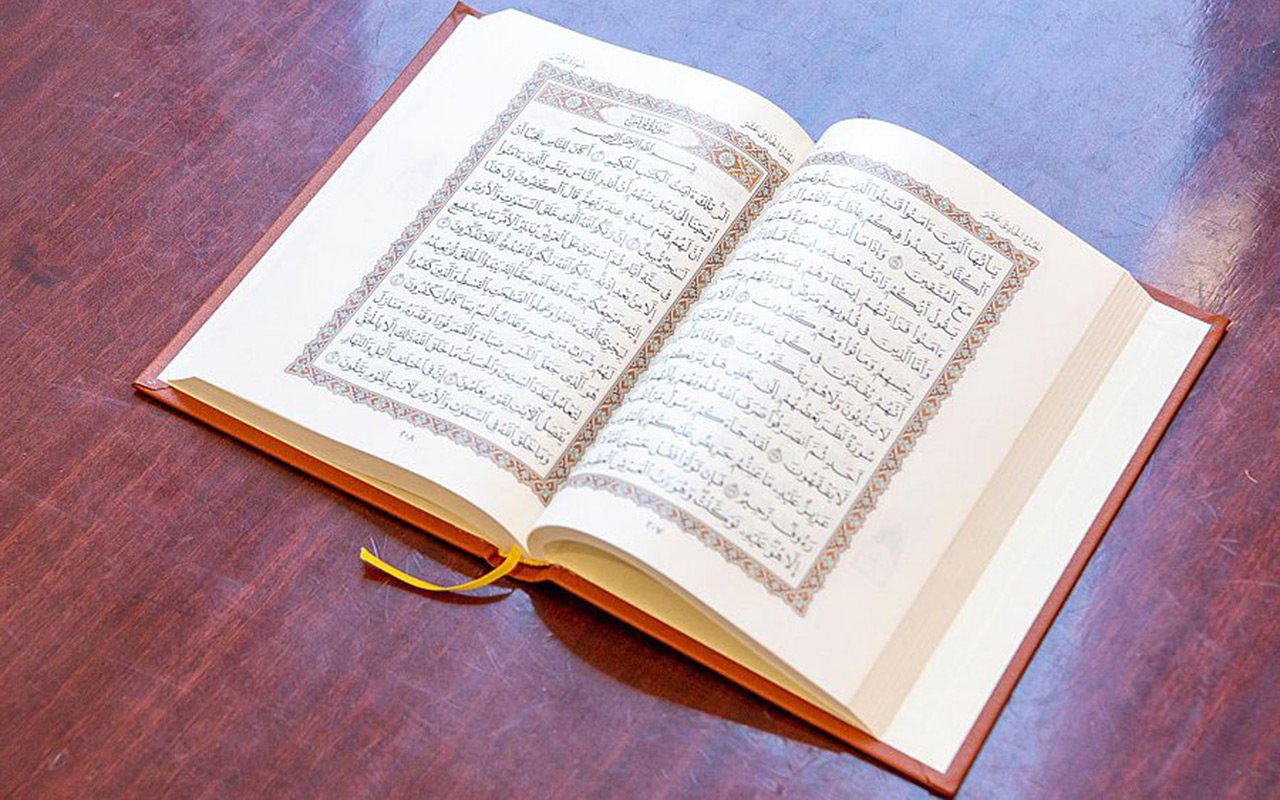 الجزء الحادي عشر
يَٰٓأَيُّهَا ٱلَّذِينَ ءَامَنُوا۟ قَٰتِلُوا۟ ٱلَّذِينَ يَلُونَكُم مِّنَ
ٱلْكُفَّارِ وَلْيَجِدُوا۟ فِيكُمْ غِلْظَةً وَٱعْلَمُوٓا۟ أَنَّ ٱللَّهَ
مَعَ ٱلْمُتَّقِينَ ١٢٣ وَإِذَا مَآ أُنزِلَتْ سُورَةٌ فَمِنْهُم مَّن
يَقُولُ أَيُّكُمْ زَادَتْهُ هَٰذِهِۦٓ إِيمَٰنًا فَأَمَّا ٱلَّذِينَ
ءَامَنُوا۟ فَزَادَتْهُمْ إِيمَٰنًا وَهُمْ يَسْتَبْشِرُونَ ١٢٤
وَأَمَّا ٱلَّذِينَ فِى قُلُوبِهِم مَّرَضٌ فَزَادَتْهُمْ رِجْسًا إِلَىٰ
رِجْسِهِمْ وَمَاتُوا۟ وَهُمْ كَٰفِرُونَ ١٢٥ أَوَلَا يَرَوْنَ
أَنَّهُمْ يُفْتَنُونَ فِى كُلِّ عَامٍ مَّرَّةً أَوْ مَرَّتَيْنِ ثُمَّ
لَا يَتُوبُونَ وَلَا هُمْ يَذَّكَّرُونَ ١٢٦ وَإِذَا مَآ أُنزِلَتْ
سُورَةٌ نَّظَرَ بَعْضُهُمْ إِلَىٰ بَعْضٍ هَلْ يَرَىٰكُم مِّنْ
أَحَدٍ ثُمَّ ٱنصَرَفُوا۟ صَرَفَ ٱللَّهُ قُلُوبَهُم بِأَنَّهُمْ قَوْمٌ
لَّا يَفْقَهُونَ ١٢٧ لَقَدْ جَآءَكُمْ رَسُولٌ مِّنْ أَنفُسِكُمْ
عَزِيزٌ عَلَيْهِ مَا عَنِتُّمْ حَرِيصٌ عَلَيْكُم بِٱلْمُؤْمِنِينَ
رَءُوفٌ رَّحِيمٌ ١٢٨ فَإِن تَوَلَّوْا۟ فَقُلْ حَسْبِىَ ٱللَّهُ لَآ إِلَٰهَ
إِلَّا هُوَ عَلَيْهِ تَوَكَّلْتُ وَهُوَ رَبُّ ٱلْعَرْشِ ٱلْعَظِيمِ ١٢٩
٢٠٧
الجزء الحادي عشر
سورة يونس
سُورَةُ يُونُسَ
بِسْمِ ٱللَّهِ ٱلرَّحْمَٰنِ ٱلرَّحِيمِ
الٓر تِلْكَ ءَايَٰتُ ٱلْكِتَٰبِ ٱلْحَكِيمِ ١ أَكَانَ لِلنَّاسِ عَجَبًا أَنْ
أَوْحَيْنَآ إِلَىٰ رَجُلٍ مِّنْهُمْ أَنْ أَنذِرِ ٱلنَّاسَ وَبَشِّرِ ٱلَّذِينَ ءَامَنُوٓا۟
أَنَّ لَهُمْ قَدَمَ صِدْقٍ عِندَ رَبِّهِمْ قَالَ ٱلْكَٰفِرُونَ إِنَّ هَٰذَا
لَسَٰحِرٌ مُّبِينٌ ٢ إِنَّ رَبَّكُمُ ٱللَّهُ ٱلَّذِى خَلَقَ ٱلسَّمَٰوَٰتِ وَٱلْأَرْضَ
فِى سِتَّةِ أَيَّامٍ ثُمَّ ٱسْتَوَىٰ عَلَى ٱلْعَرْشِ يُدَبِّرُ ٱلْأَمْرَ مَا مِن شَفِيعٍ
إِلَّا مِنۢ بَعْدِ إِذْنِهِۦ ذَٰلِكُمُ ٱللَّهُ رَبُّكُمْ فَٱعْبُدُوهُ أَفَلَا تَذَكَّرُونَ ٣
إِلَيْهِ مَرْجِعُكُمْ جَمِيعًا وَعْدَ ٱللَّهِ حَقًّا إِنَّهُۥ يَبْدَؤُا۟ ٱلْخَلْقَ ثُمَّ يُعِيدُهُۥ
لِيَجْزِىَ ٱلَّذِينَ ءَامَنُوا۟ وَعَمِلُوا۟ ٱلصَّٰلِحَٰتِ بِٱلْقِسْطِ وَٱلَّذِينَ كَفَرُوا۟
لَهُمْ شَرَابٌ مِّنْ حَمِيمٍ وَعَذَابٌ أَلِيمٌۢ بِمَا كَانُوا۟ يَكْفُرُونَ ٤
هُوَ ٱلَّذِى جَعَلَ ٱلشَّمْسَ ضِيَآءً وَٱلْقَمَرَ نُورًا وَقَدَّرَهُۥ مَنَازِلَ
لِتَعْلَمُوا۟ عَدَدَ ٱلسِّنِينَ وَٱلْحِسَابَ مَا خَلَقَ ٱللَّهُ ذَٰلِكَ إِلَّا بِٱلْحَقِّ
يُفَصِّلُ ٱلْءَايَٰتِ لِقَوْمٍ يَعْلَمُونَ ٥ إِنَّ فِى ٱخْتِلَٰفِ ٱلَّيْلِ وَٱلنَّهَارِ
وَمَا خَلَقَ ٱللَّهُ فِى ٱلسَّمَٰوَٰتِ وَٱلْأَرْضِ لَءَايَٰتٍ لِّقَوْمٍ يَتَّقُونَ ٦
٢٠٨